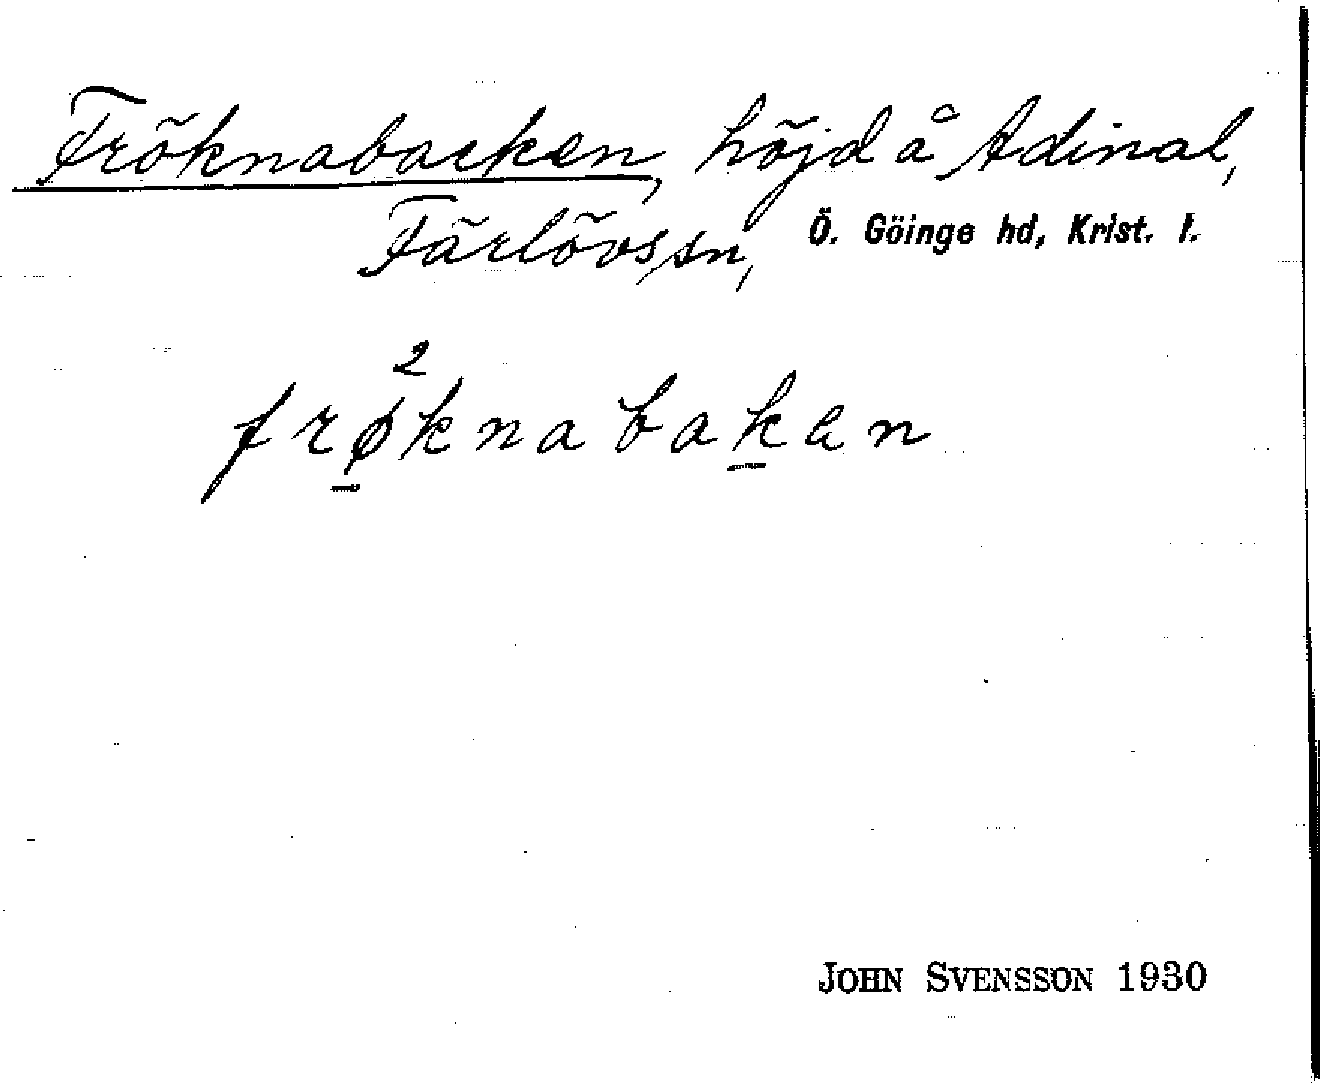 Fröknabacken, höjd å Adinal,
Färlövs sn, Ö. Göinge hd, Krist. l.
frø²knabakan
JOHN SVENSSON 1930